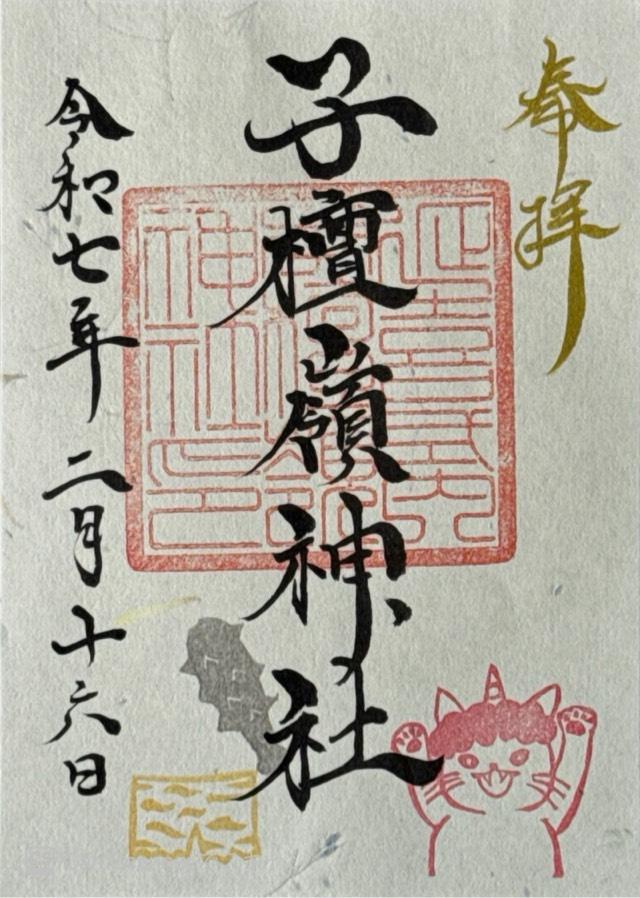 奉拝
子檀嶺神社
令和七年二月十六日